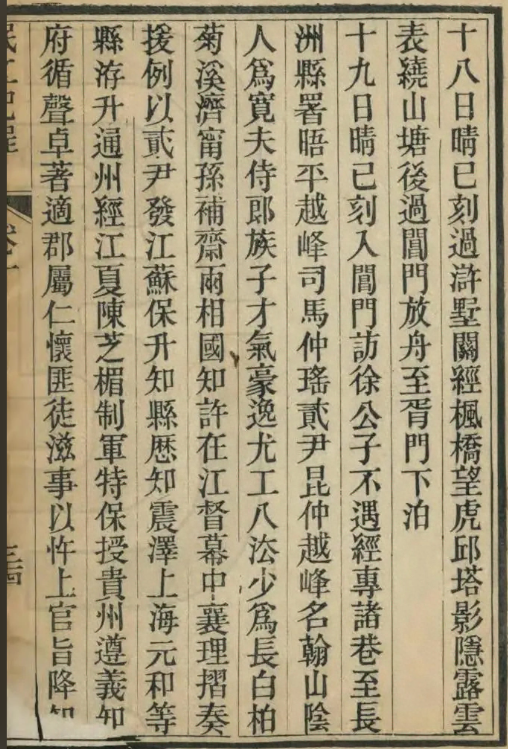 十八日晴巳刻過滸墅關經楓橋望虎邱塔影隱露雲
表繞山塘後過閶門放舟至胥門下泊
十九日晴巳刻入閶門訪徐公子不遇經專諸巷至長
洲縣署晤平越峰司馬仲瑤貳尹昆仲越峰名翰山陰
人爲寬夫侍郎族子才氣豪逸尤工八法少爲長白柏
菊溪濟甯孫補齋兩相國知許在江督幕中襄理摺奏
援例以貳尹發江蘇保升知縣歷知震澤上海元和等
縣洊升通州經江夏陳芝楣制軍特保授貴州遵義知
府循聲卓著適郡屬仁懷匪徒滋事以忤上官旨降知